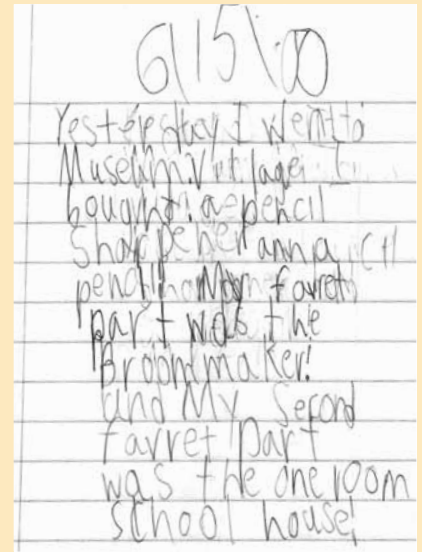 6\15\00
Yesterday I went to
Museum Village I
bought a pencil
Sharpener anna
pencil My favret
part was the
Broommaker!
and My Second
favret part
was the one room
School house!